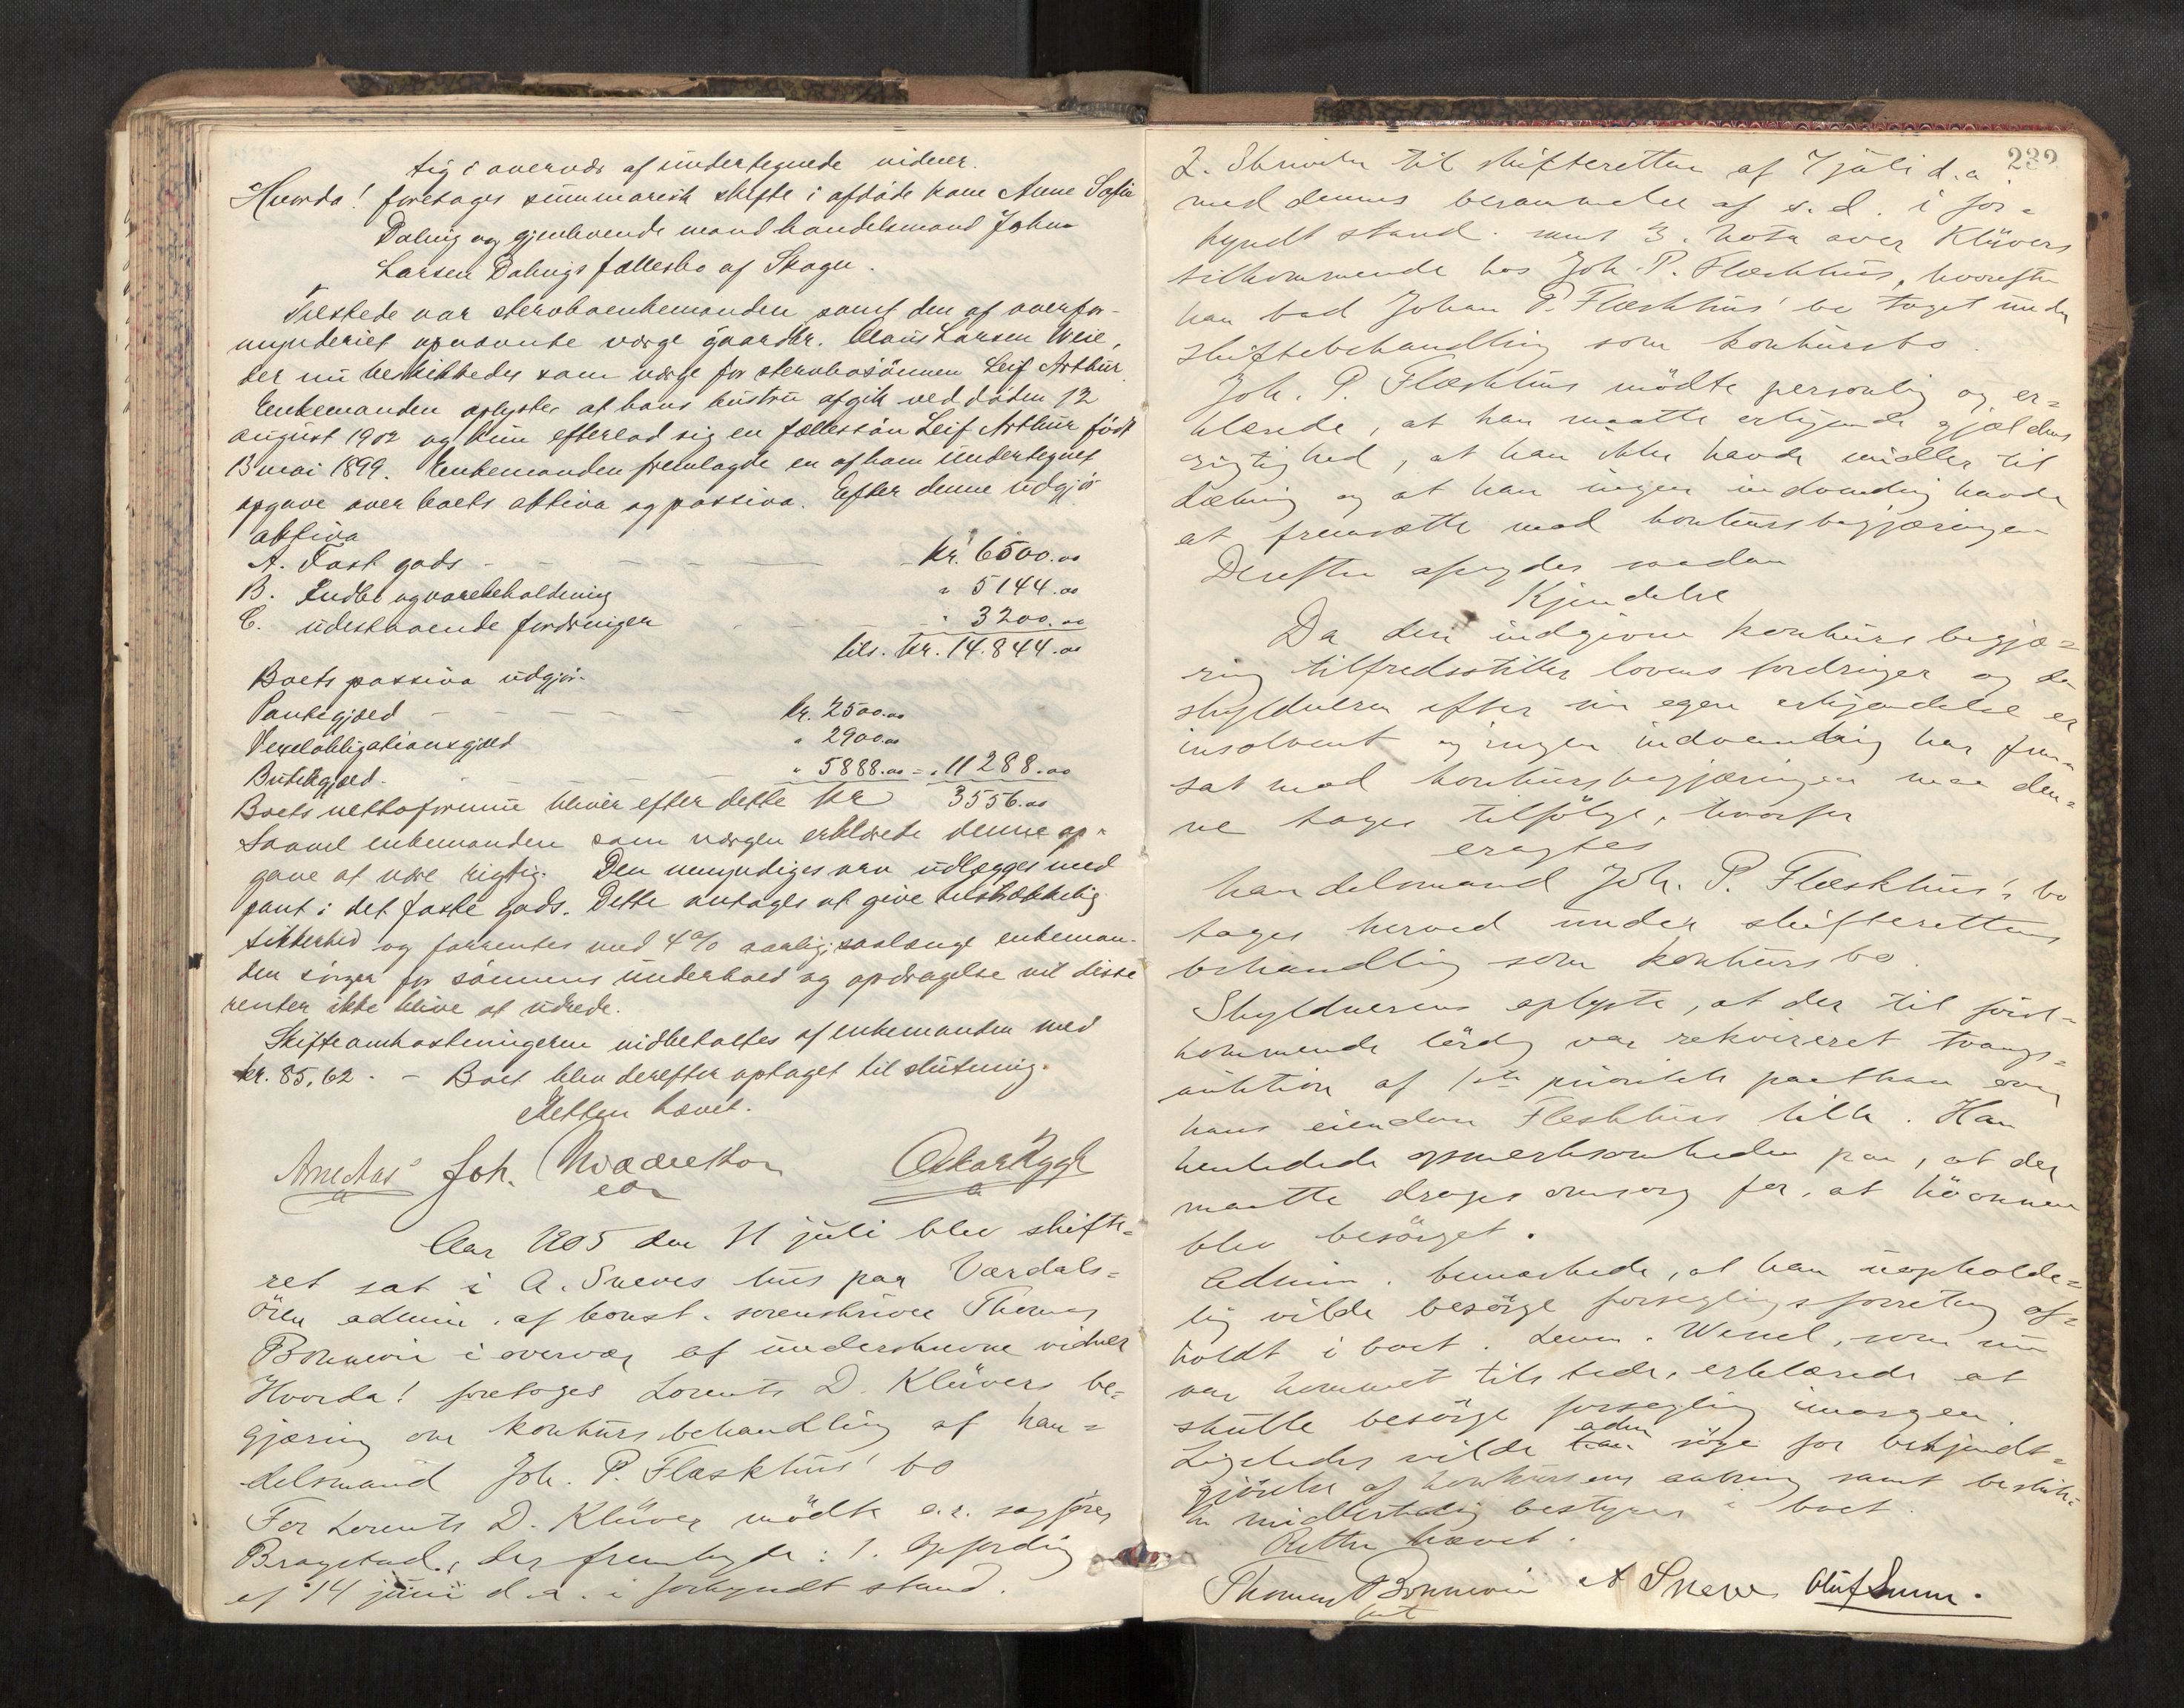 tig i overvær af undertegnede vidner.
Hvorda! foretages summarisk skifte i afdøde kone Anne Sofie
Dalvig og gjenlevende mand handelsmand Johan
Larsen Dalvigs fællesbo af Skogn.
Tilstede var sterbboenkemanden samt den af overfor-
mynderiet opnævnte værge gaardbr. Claus Larsen Weie,
der nu beskikkedes som værge for sterbbosönnen Leif Arthur.
Enkemanden oplyste at hans hustru afgik ved döden 12
august 1902 og kun efterlod sig en fællessön Leif Arthur födt
13 mai 1899. Enkemanden fremlagde en af ham undertegnet
opgave over boets aktiva og passiva. Efter denne udgjör
aktiva
A. Fast gods - - - - kr. 6500.00
B. Indbo og varebeholdning " 5144.00
C. udestaaende fordringer - - - " 3200.00
tils. kr. 14.844.00
Boets passiva udgjör
Pantegjæld - - - - kr. 2500.00
Vexelobligationsgjæld " 2900.00
Butikgjæld - - - - " 5888.00 = " 11288.00
Boets nettoformue bliver efter dette kr 3556.00
Saavel enkemanden som værgen erklærede denne op-
gave at være rigtig. Den umyndiges arv udlægges med
pant i det faste gods. Dette antages at give tilstrækkelig
sikkerhed og forrentes med 4% aarlig; saalænge enkeman-
den sörger for sönnens underhold og opdragelse vil disse
renter ikke blive at udrede.
Skifteomkostningerne vidbetaltes af enkemanden med
kr. 85,62. - Boet blev derefter optaget til slutning.
Retten hævet.
Joh. Oskar Rygh
Aar 1905 den 11 juli blev skifte-
ret sat i A. Sneves hus paa Værdals-
ören admin. af const. sorenskriver Thomas
Bonnevie i overvær af underskrevne vidner
Hvorda! foretoges Lorents D. Klüvers be-
gjæring om konkursbehandling af han-
delsmand Joh. P. Flæskhus' bo
For Lorents D. Klüver mödte o.r. sagförer
Bragstad, der fremlagde: 1. Opfordring
af 14 juni d.a. i forkyndt stand.
232
2. Skrivelse til skifteretten af 7 juli d.a
med dennes berammelse af s.d. i for-
kyndt stand. samt 3. Nota over Klüvers
tilkommende hos Joh. P. Flæskhus, hvorefter
han bad Johan P. Flæskhus' bo taget under
skiftebehandling som konkursbo.
Joh. P. Flæskhus mödte personlig og er-
klærede, at han maatte erkjende gjældens
rigtighed, at han ikke havde midler til
dækning og at han ingen indvending havde
at fremsætte mod konkursbegjæringen
Derefter afsagdes saadan
Kjendelse
Da den indgivne konkursbegjæ-
ring tilfredsstiller lovens fordringer og da
skyldneren efter sin egen erkjendelse er
insolvent og ingen indvending har frem
sat mod konkursbegjæringen maa den-
ne tages tilfölge, hvorfor
eragtes
Handelsmand Joh. P. Flæskhus's bo
tages herved under skifterettens
behandling som konkursbo.
Skyldneren oplyste, at der til först-
kommende lördag var rekvireret tvangs-
auktion af 1ste prioritets panthaver over
hans eiendom Fleskhus lille. Han
henledede opmerksomheden paa, at der
maatte drages omsorg for, at höonnen
blev besörget.
Admin. bemærkede, at han uopholde-
lig vilde besörge forseglingsforretning af-
holdt i boet. Lensm. Wessel, som nu
var kommet tilstede, erklærede at
skulle besörge forsegling imorgen.
Ligeledes vilde adm söge for bekjendt-
gjörelse af konkursens aabning samt beskik-
ke midlertidig bestyrer i boet.
Retten hævet.
Thomas Bonnevie A Sneve Oluf
cst